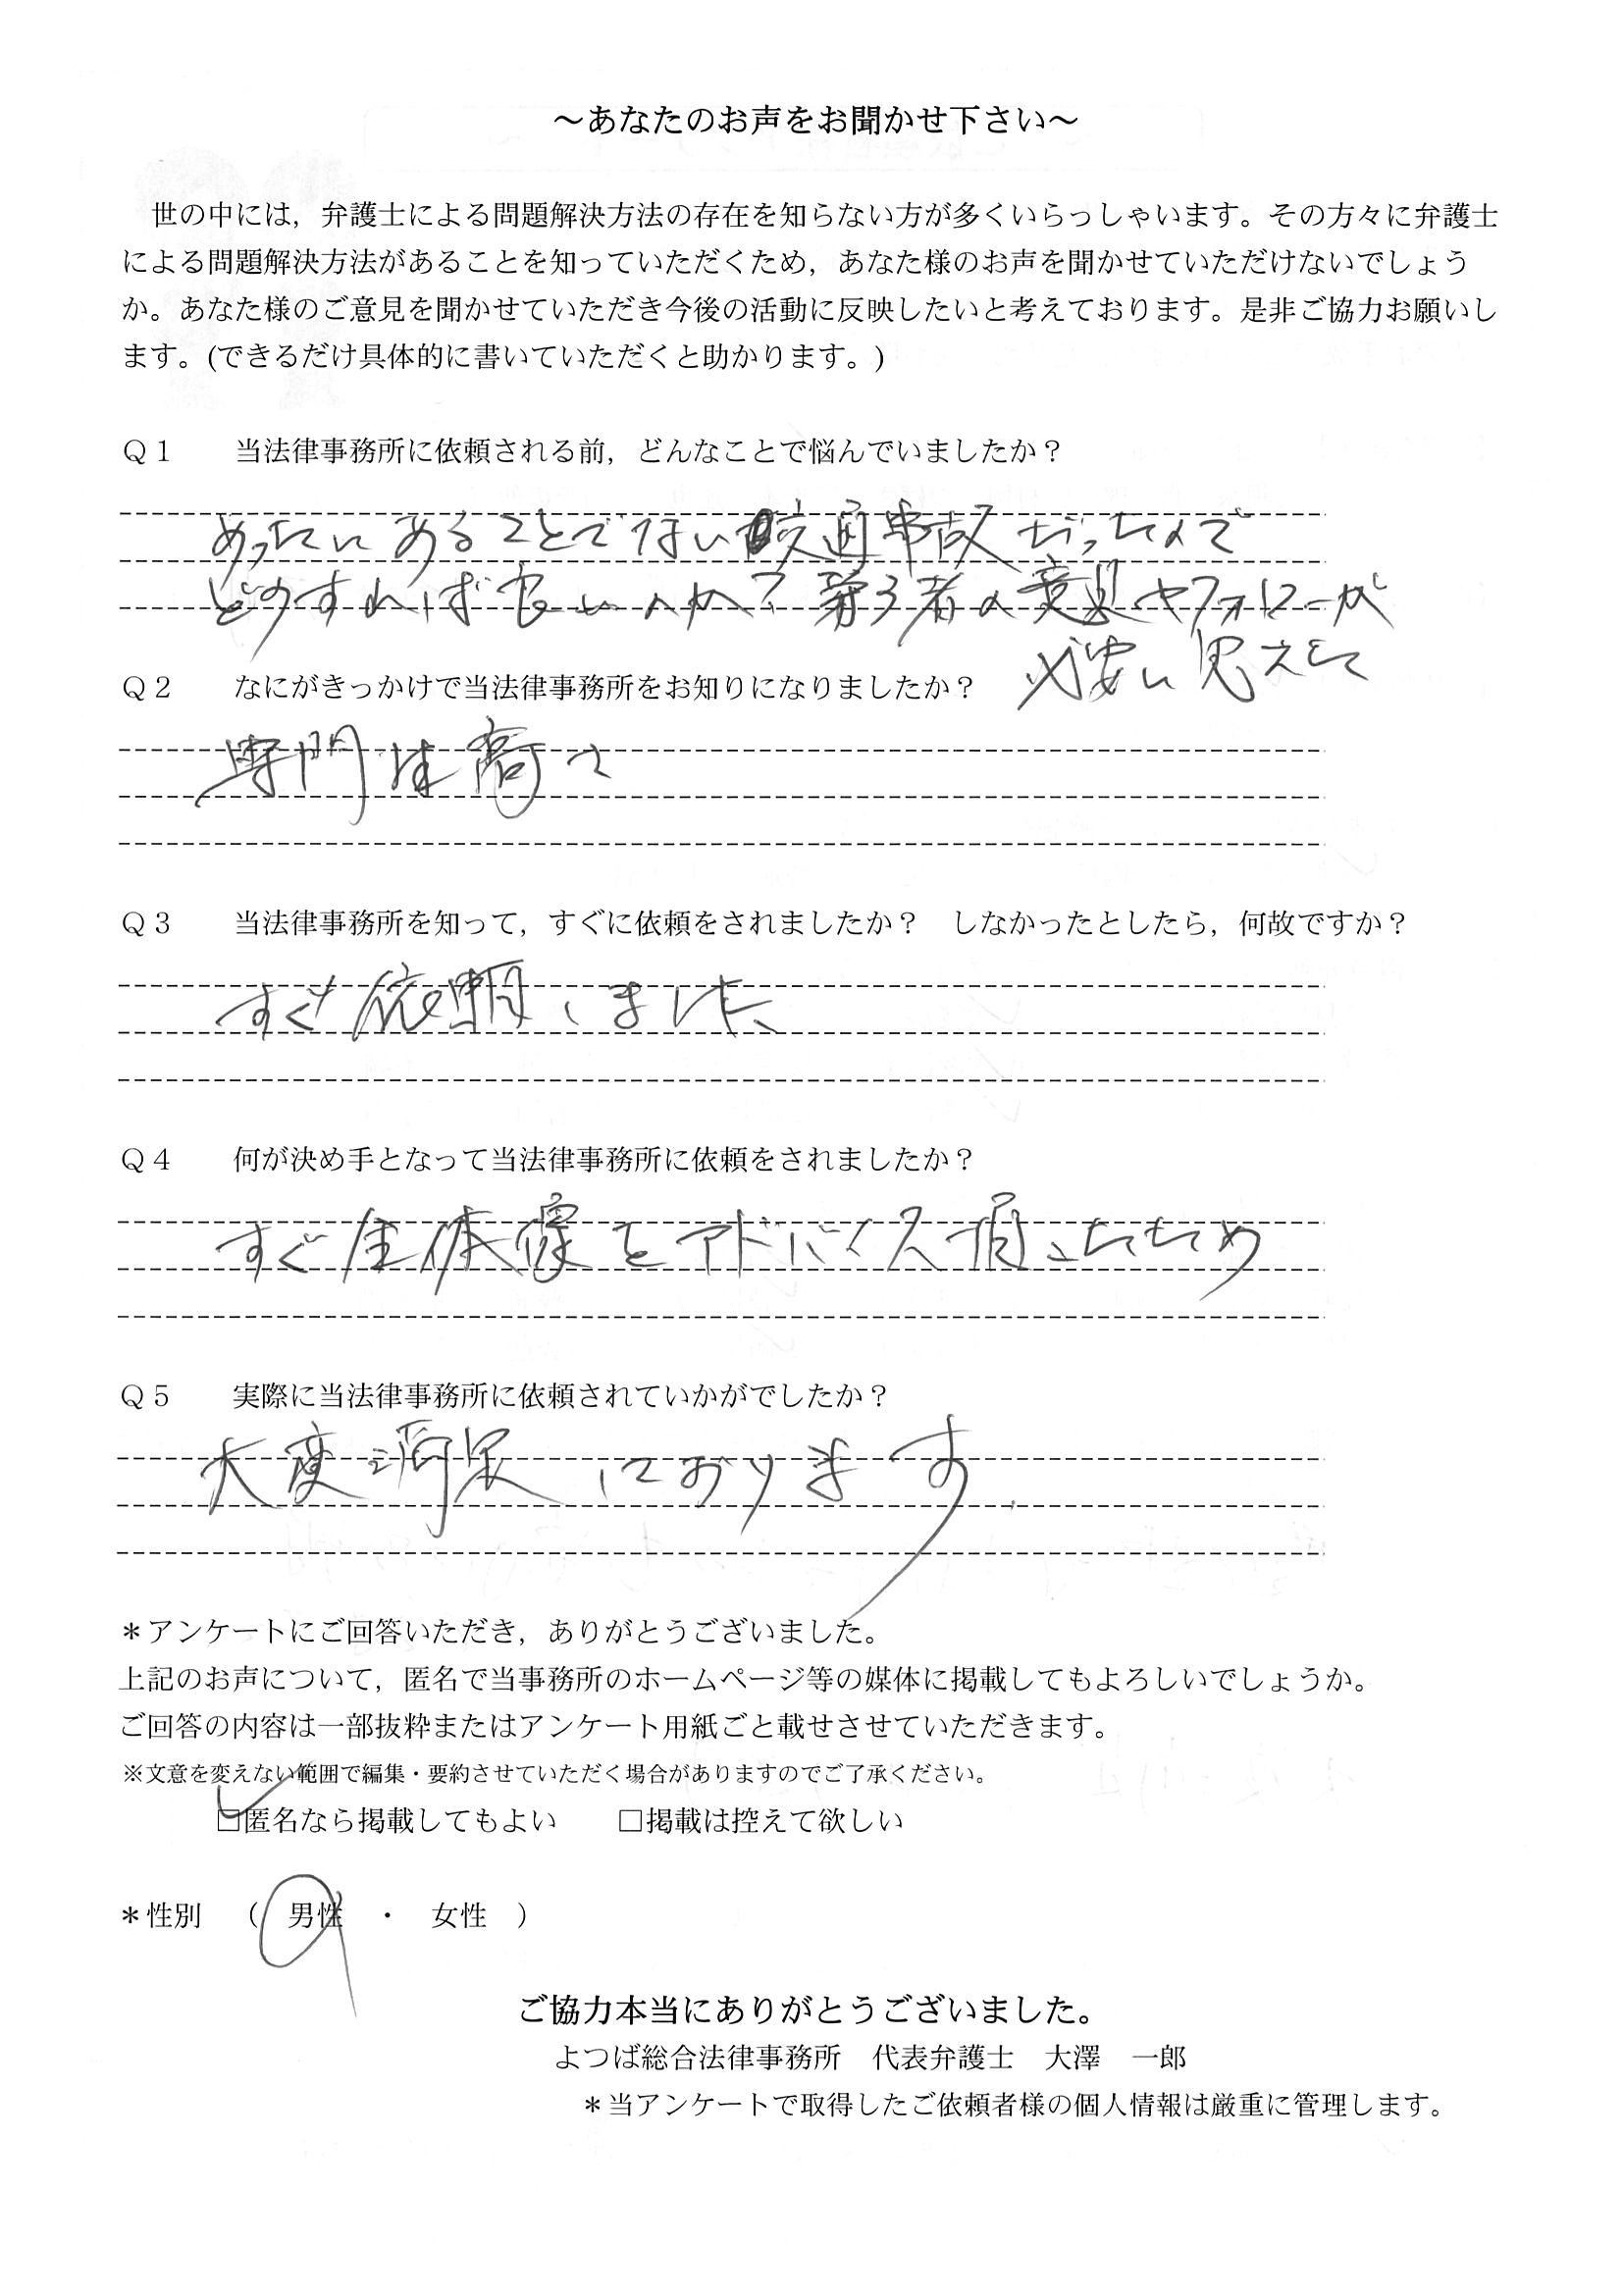 ～あなたのお声をお聞かせ下さい～
世の中には，弁護士による問題解決方法の存在を知らない方が多くいらっしゃいます。その方々に弁護士
による問題解決方法があることを知っていただくため，あなた様のお声を聞かせていただけないでしょう
か。あなた様のご意見を聞かせていただき今後の活動に反映したいと考えております。是非ご協力お願いし
ます。(できるだけ具体的に書いていただくと助かります。)
Ｑ１　　当法律事務所に依頼される前，どんなことで悩んでいましたか？
めったにあることでない交通事故だったので
どうすれば良いのか？第3者の意見やフォローが
必要に思えて
Ｑ２　　なにがきっかけで当法律事務所をお知りになりましたか？
専門性高さ
Ｑ３　　当法律事務所を知って，すぐに依頼をされましたか？　しなかったとしたら，何故ですか？
すぐ依頼しました
Ｑ４　　何が決め手となって当法律事務所に依頼をされましたか？
すぐ全体像をアドバイス頂いたため
Ｑ５　　実際に当法律事務所に依頼されていかがでしたか？
大変満足しております。
＊アンケートにご回答いただき，ありがとうございました。
上記のお声について，匿名で当事務所のホームページ等の媒体に掲載してもよろしいでしょうか。
ご回答の内容は一部抜粋またはアンケート用紙ごと載せさせていただきます。
※文意を変えない範囲で編集・要約させていただく場合がありますのでご了承ください。
☑匿名なら掲載してもよい　　□掲載は控えて欲しい
＊性別　（　男性　・　女性　）
ご協力本当にありがとうございました。
よつば総合法律事務所　代表弁護士　大澤　一郎
＊当アンケートで取得したご依頼者様の個人情報は厳重に管理します。